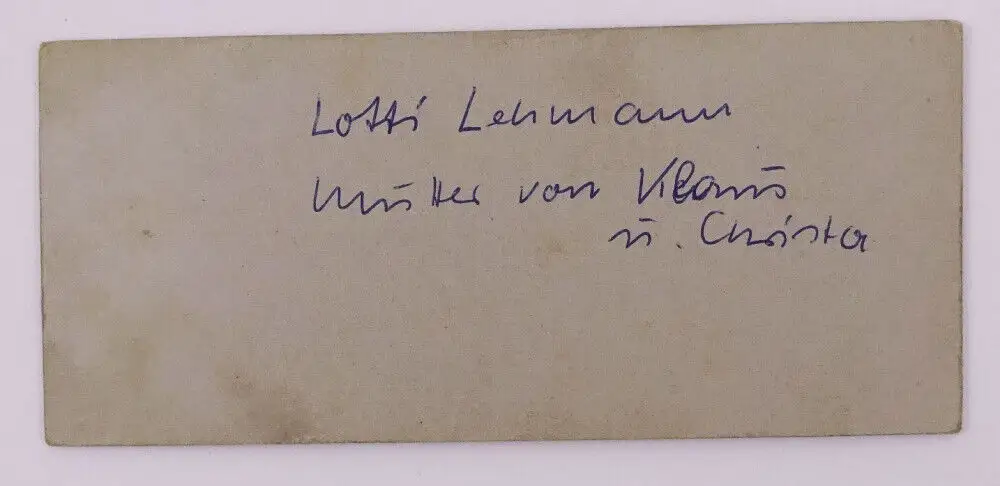 Lotti Lehmann
Mutter von Klaus
u. Christa